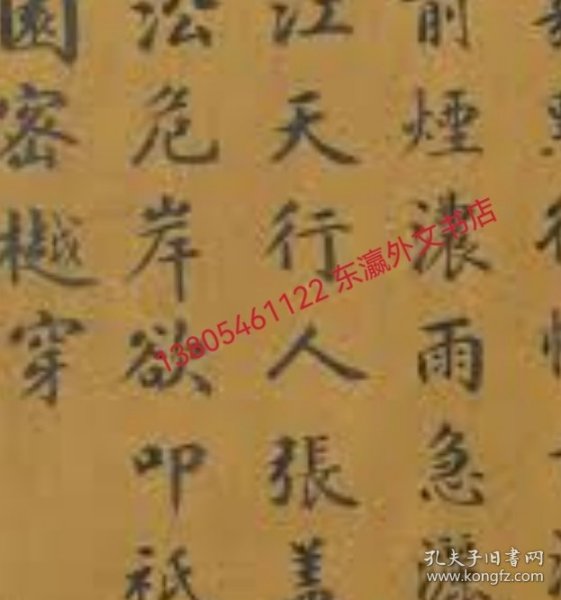 前煙濃雨急
江天行人張蓋
訟危岸欲叩祇
園密樾穿
13805461122 东瀛外文书店
孔夫子旧书网
www.kongfz.com